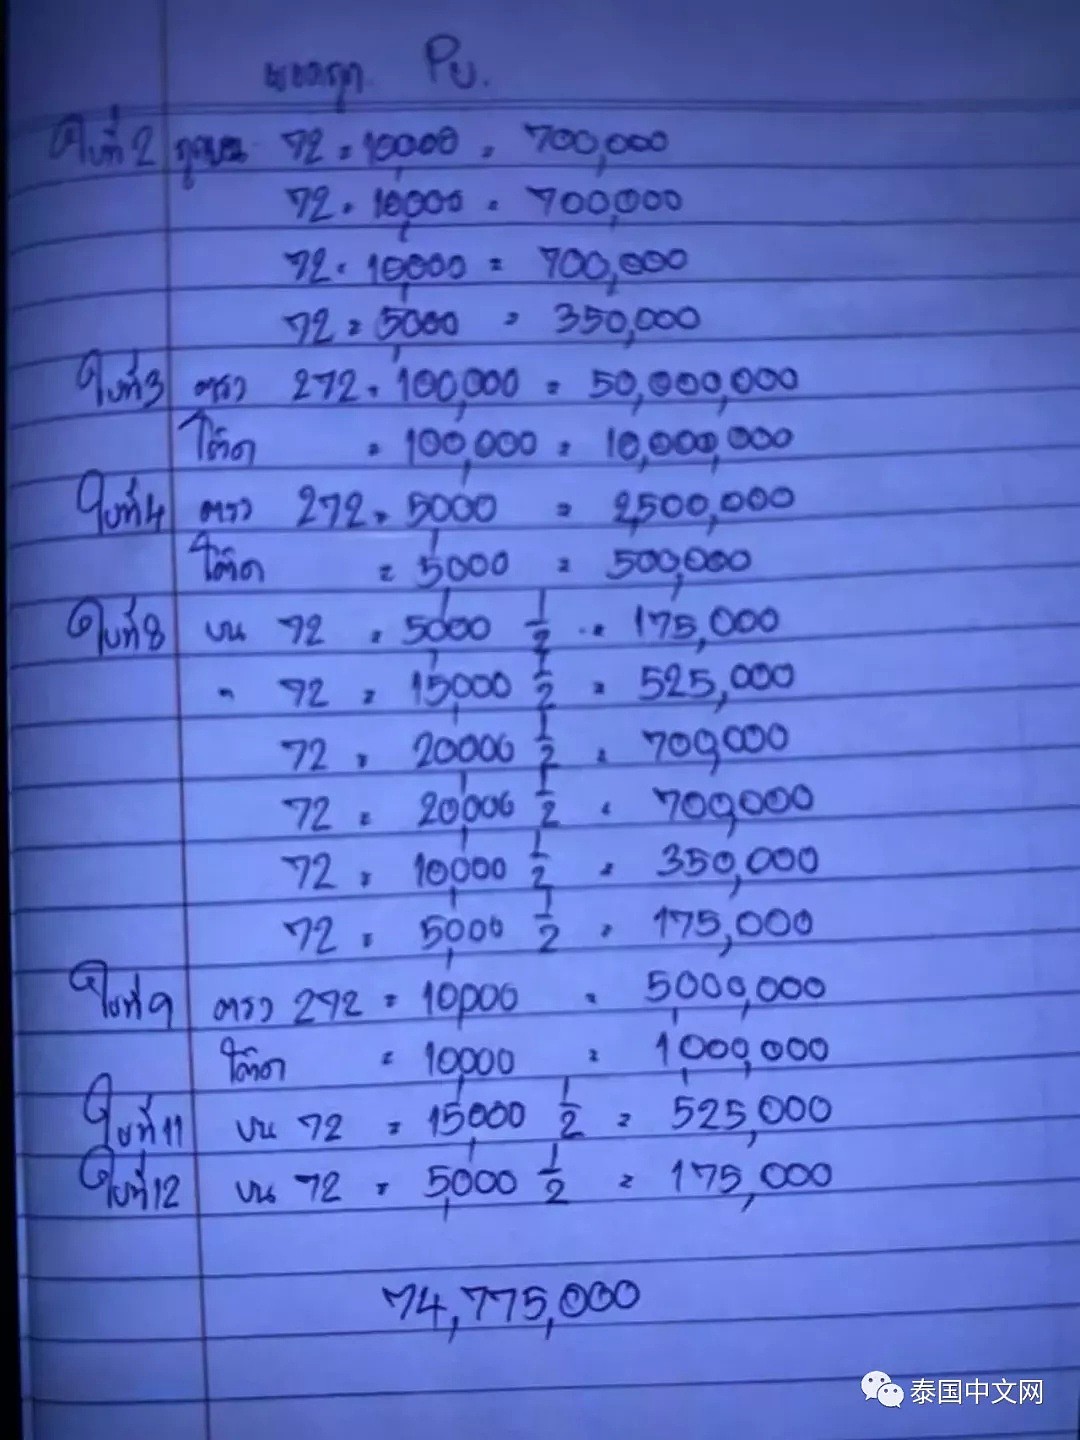 Pบ.
ใบที่2 ถูกบน 72 = 10,000 = 700,000
72 = 10,000 = 700,000
72 = 10,000 = 700,000
72 = 5,000 = 350,000
ใบที่3 ตรง 272 = 100,000 = 50,000,000
โต๊ด = 100,000 = 10,000,000
ใบที่4 ตรง 272 = 5,000 = 2,500,000
โต๊ด = 5,000 = 500,000
ใบที่8 บน 72 = 5,000 1/2 = 175,000
" 72 = 15,000 1/2 = 525,000
72 = 20,000 1/2 = 700,000
72 = 20,000 1/2 = 700,000
72 = 10,000 1/2 = 350,000
72 = 5,000 1/2 = 175,000
ใบที่9 ตรง 272 = 10,000 = 5,000,000
โต๊ด = 10,000 = 1,000,000
ใบที่11 บน 72 = 15,000 1/2 = 525,000
ใบที่12 บน 72 = 5,000 1/2 = 175,000
74,775,000
泰国中文网